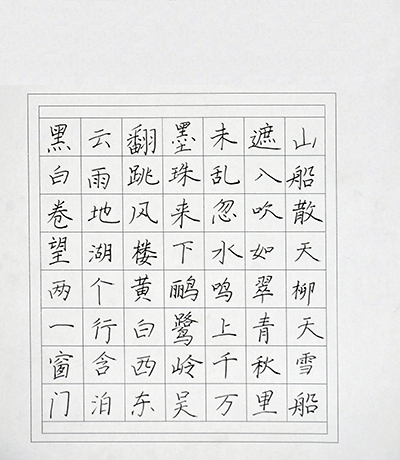 黑云翻墨未遮山
白雨跳珠乱入船
卷地风来忽吹散
望湖楼下水如天
两个黄鹂鸣翠柳
一行白鹭上青天
窗含西岭千秋雪
门泊东吴万里船